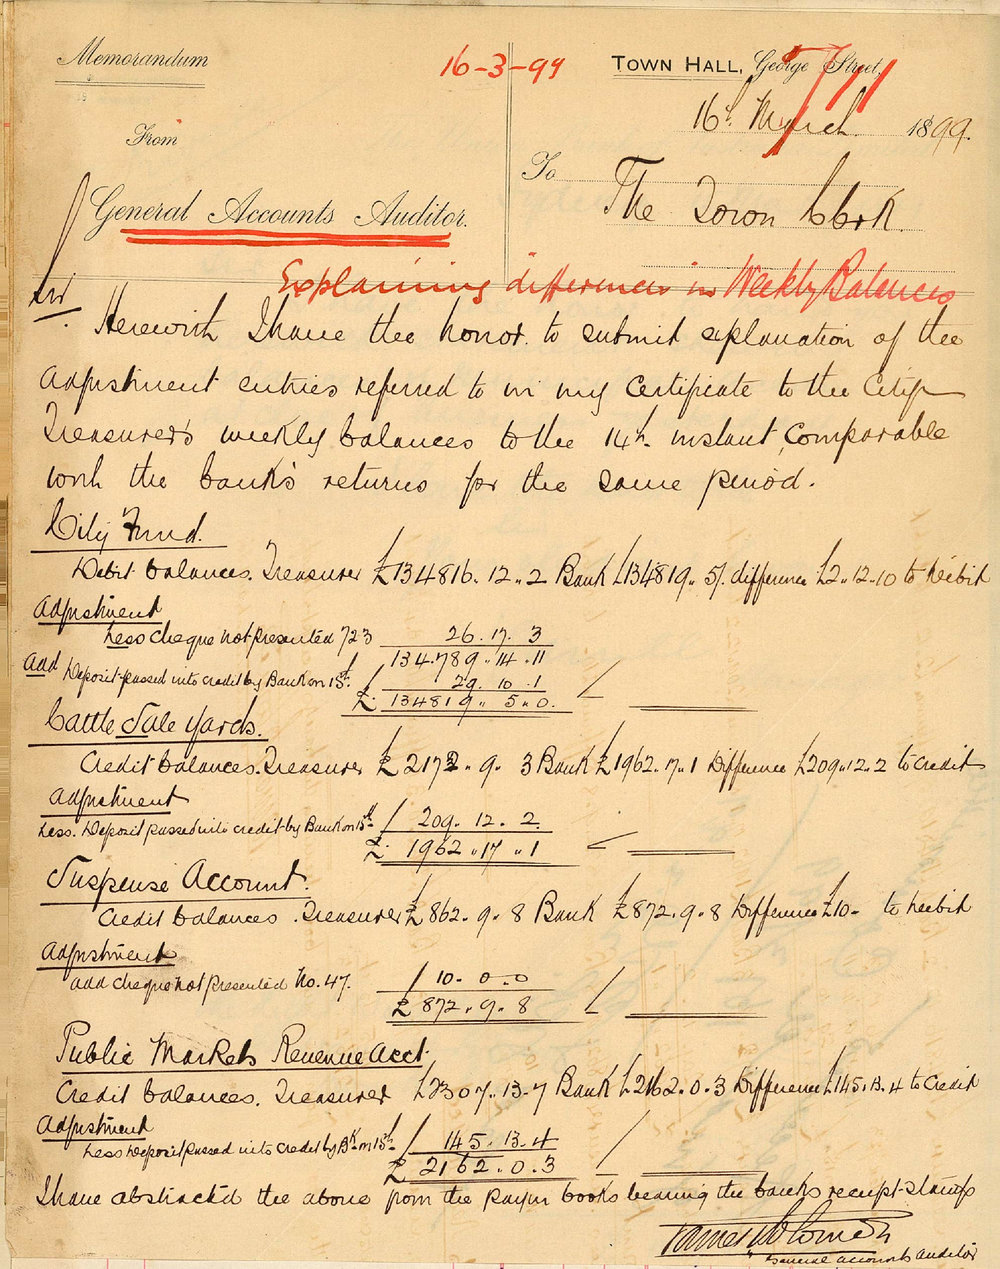 Memorandum
16-3-99
TOWN HALL, George Street,
711
16th March 1899.
From
To
The Town Clerk.
General Accounts Auditor.
Explaining differences in Weekly Balances
Sir
Herewith I have the honor to submit explanation of the
adjustment entries referred to in my certificate to the City
Treasurer's weekly balances to the 14th instant, comparable
with the bank's returns for the same period.
City Fund.
Debit balances. Treasurer £134816.12.2 Bank £134819.5/. difference £2.12.10 to debit
Adjustment
Less cheque not presented 723 26.17.3
134.789.14.11
Add Deposit passed into credit by Bank on 15th. 29.10.1
£ 134819.5.0.
Cattle Sale Yards.
Credit balances. Treasurer £2172.9.3 Bank £1962.17.1 Difference £209.12.2 to credit
Adjustment
Less. Deposit passed into credit by Bank on 15th 209.12.2.
£ 1962.17.1
Suspense Account.
Credit balances. Treasurer £862.9.8 Bank £872.9.8 Difference £10- to debit
Adjustment
add cheque not presented No. 47. 10.0.0
£ 872.9.8
Public Markets Revenue Acct.
Credit balances. Treasurer £2307.13.7 Bank £2162.0.3 Difference £145.13.4 to credit
Adjustment
Less Deposit passed into credit by Bk on 15th 145.13.4
£ 2162.0.3
I have abstracted the above from the payin books bearing the banks receipt stamps
James
General accounts auditor